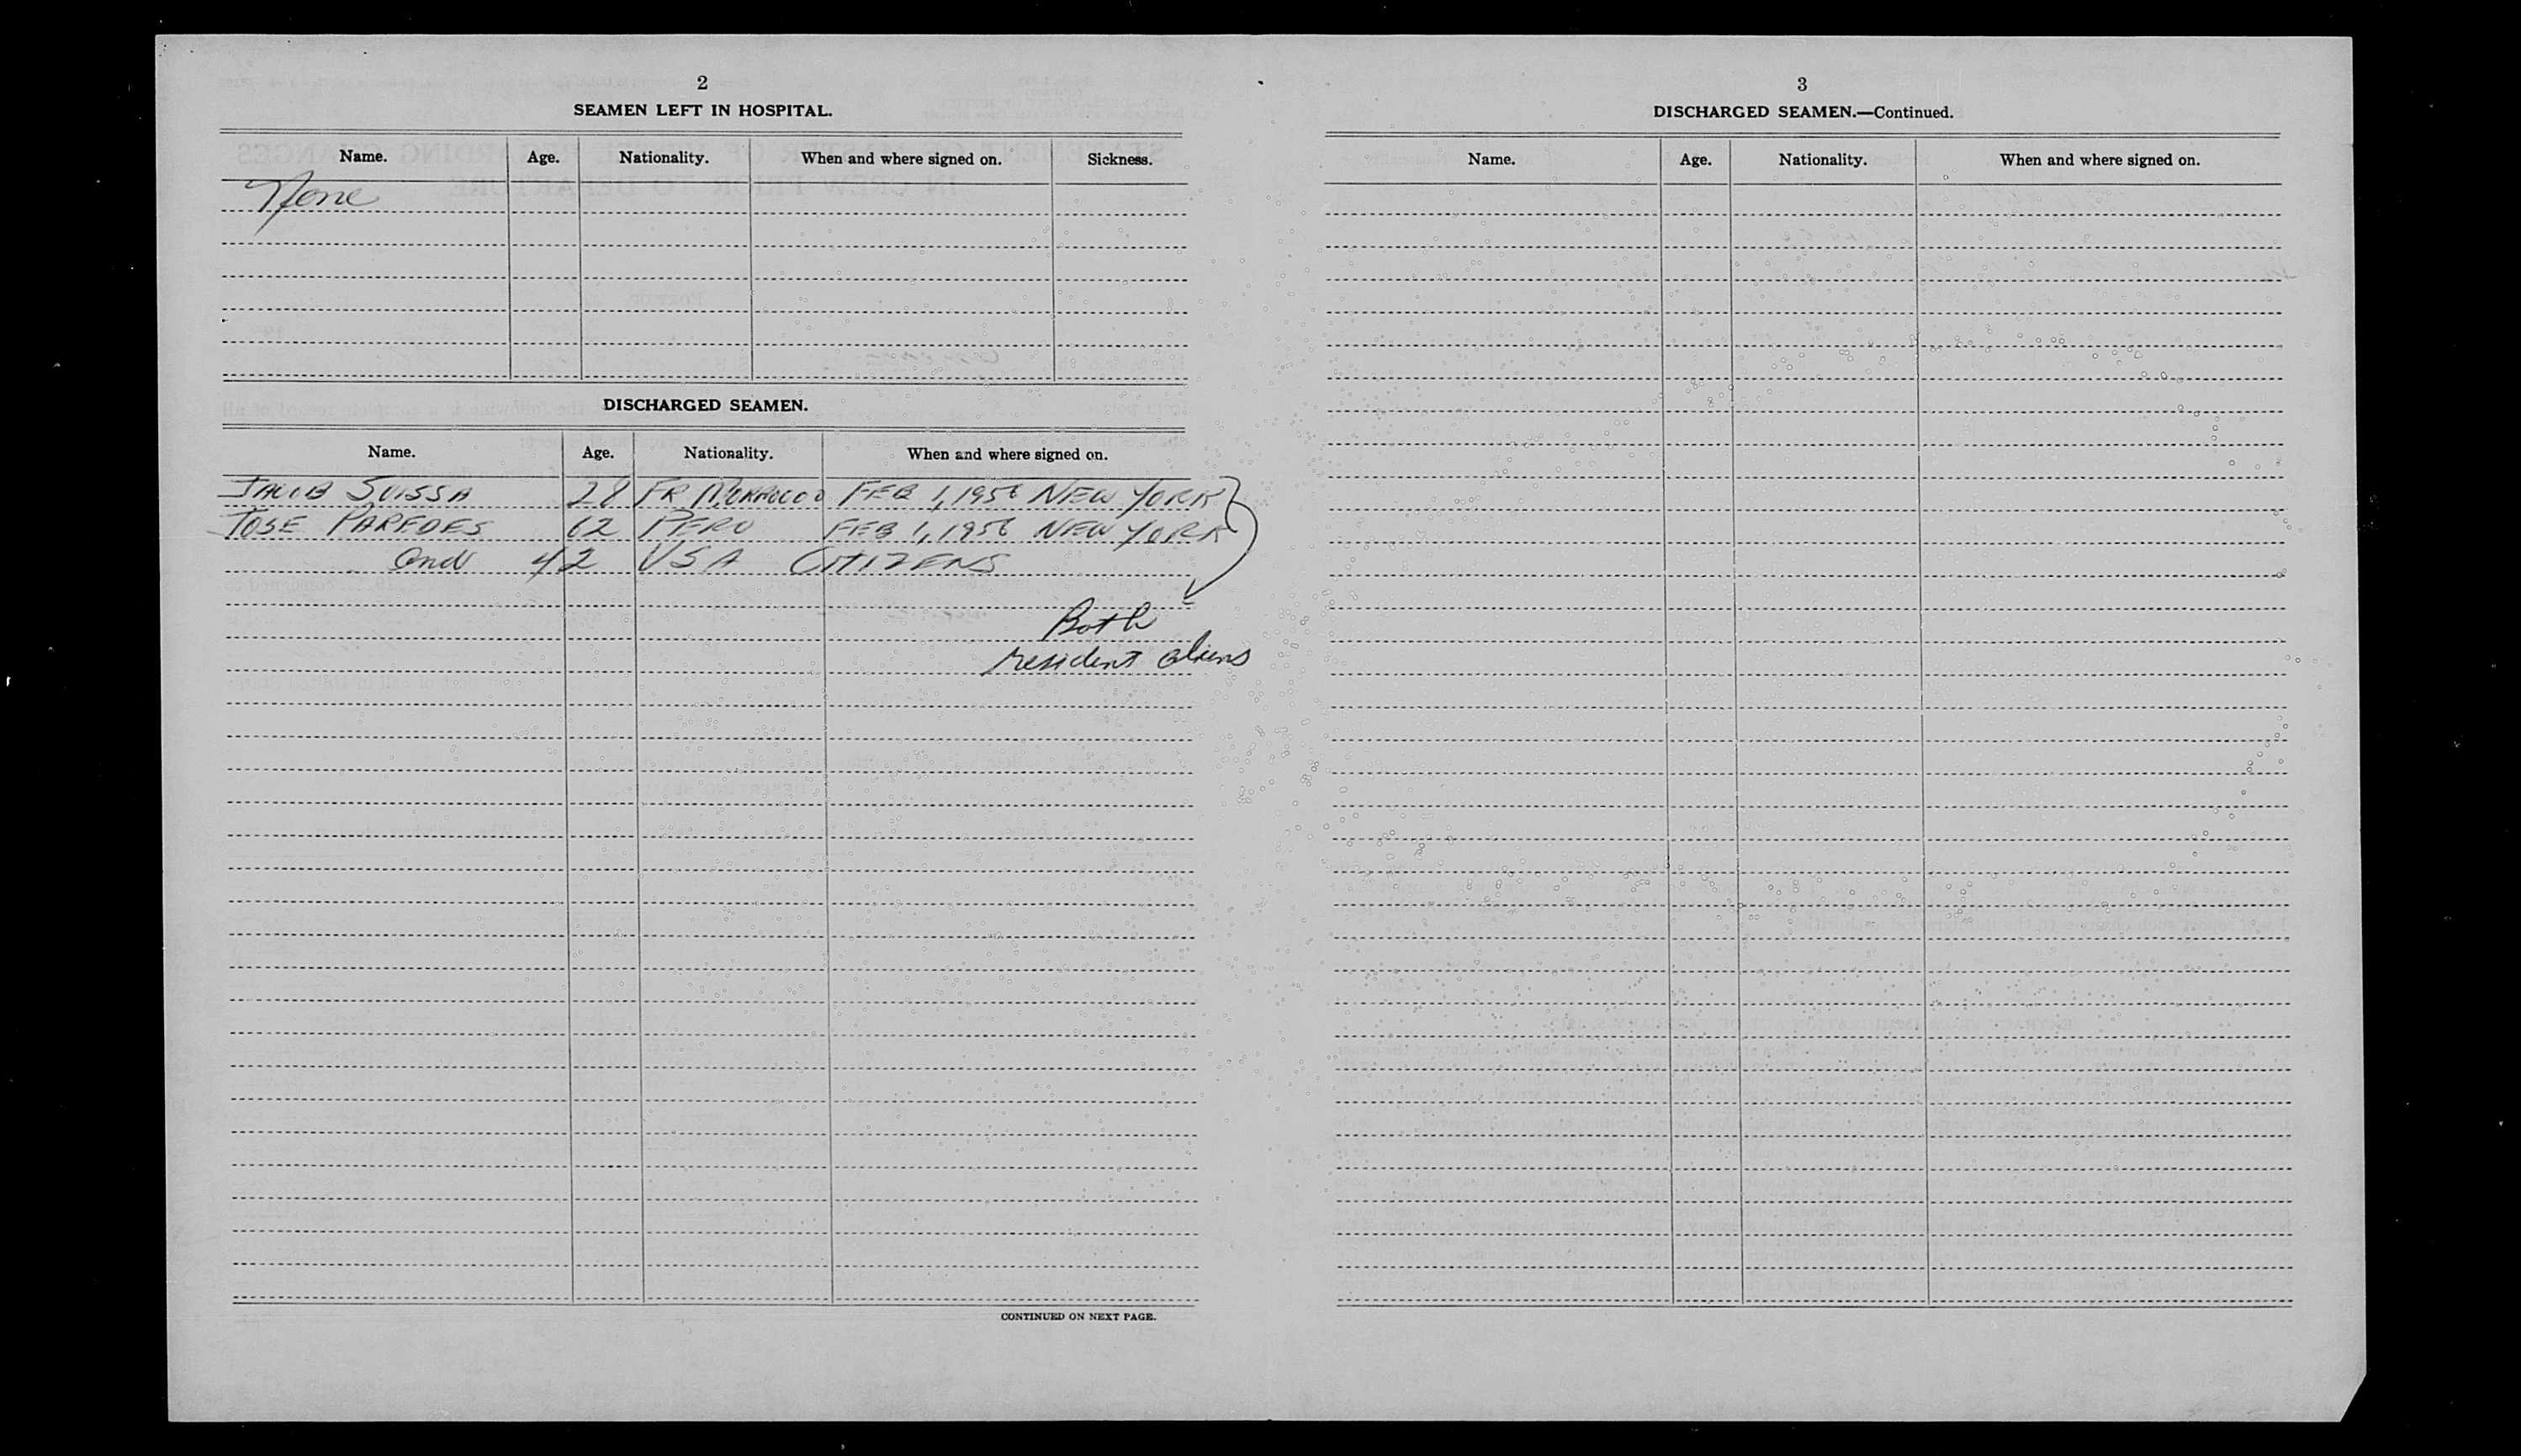 2
SEAMEN LEFT IN HOSPITAL.
Name. Age. Nationality. When and where signed on. Sickness.
None
DISCHARGED SEAMEN.
Name. Age. Nationality. When and where signed on.
JACOB SUISSA 28 FR MORROCCO FEB 1, 1956 NEW YORK
JOSE PAREDES 62 PERU FEB 1, 1956 NEW YORK
and 42 USA CITIZENS
Both
resident aliens
CONTINUED ON NEXT PAGE.
3
DISCHARGED SEAMEN.—Continued.
Name. Age. Nationality. When and where signed on.